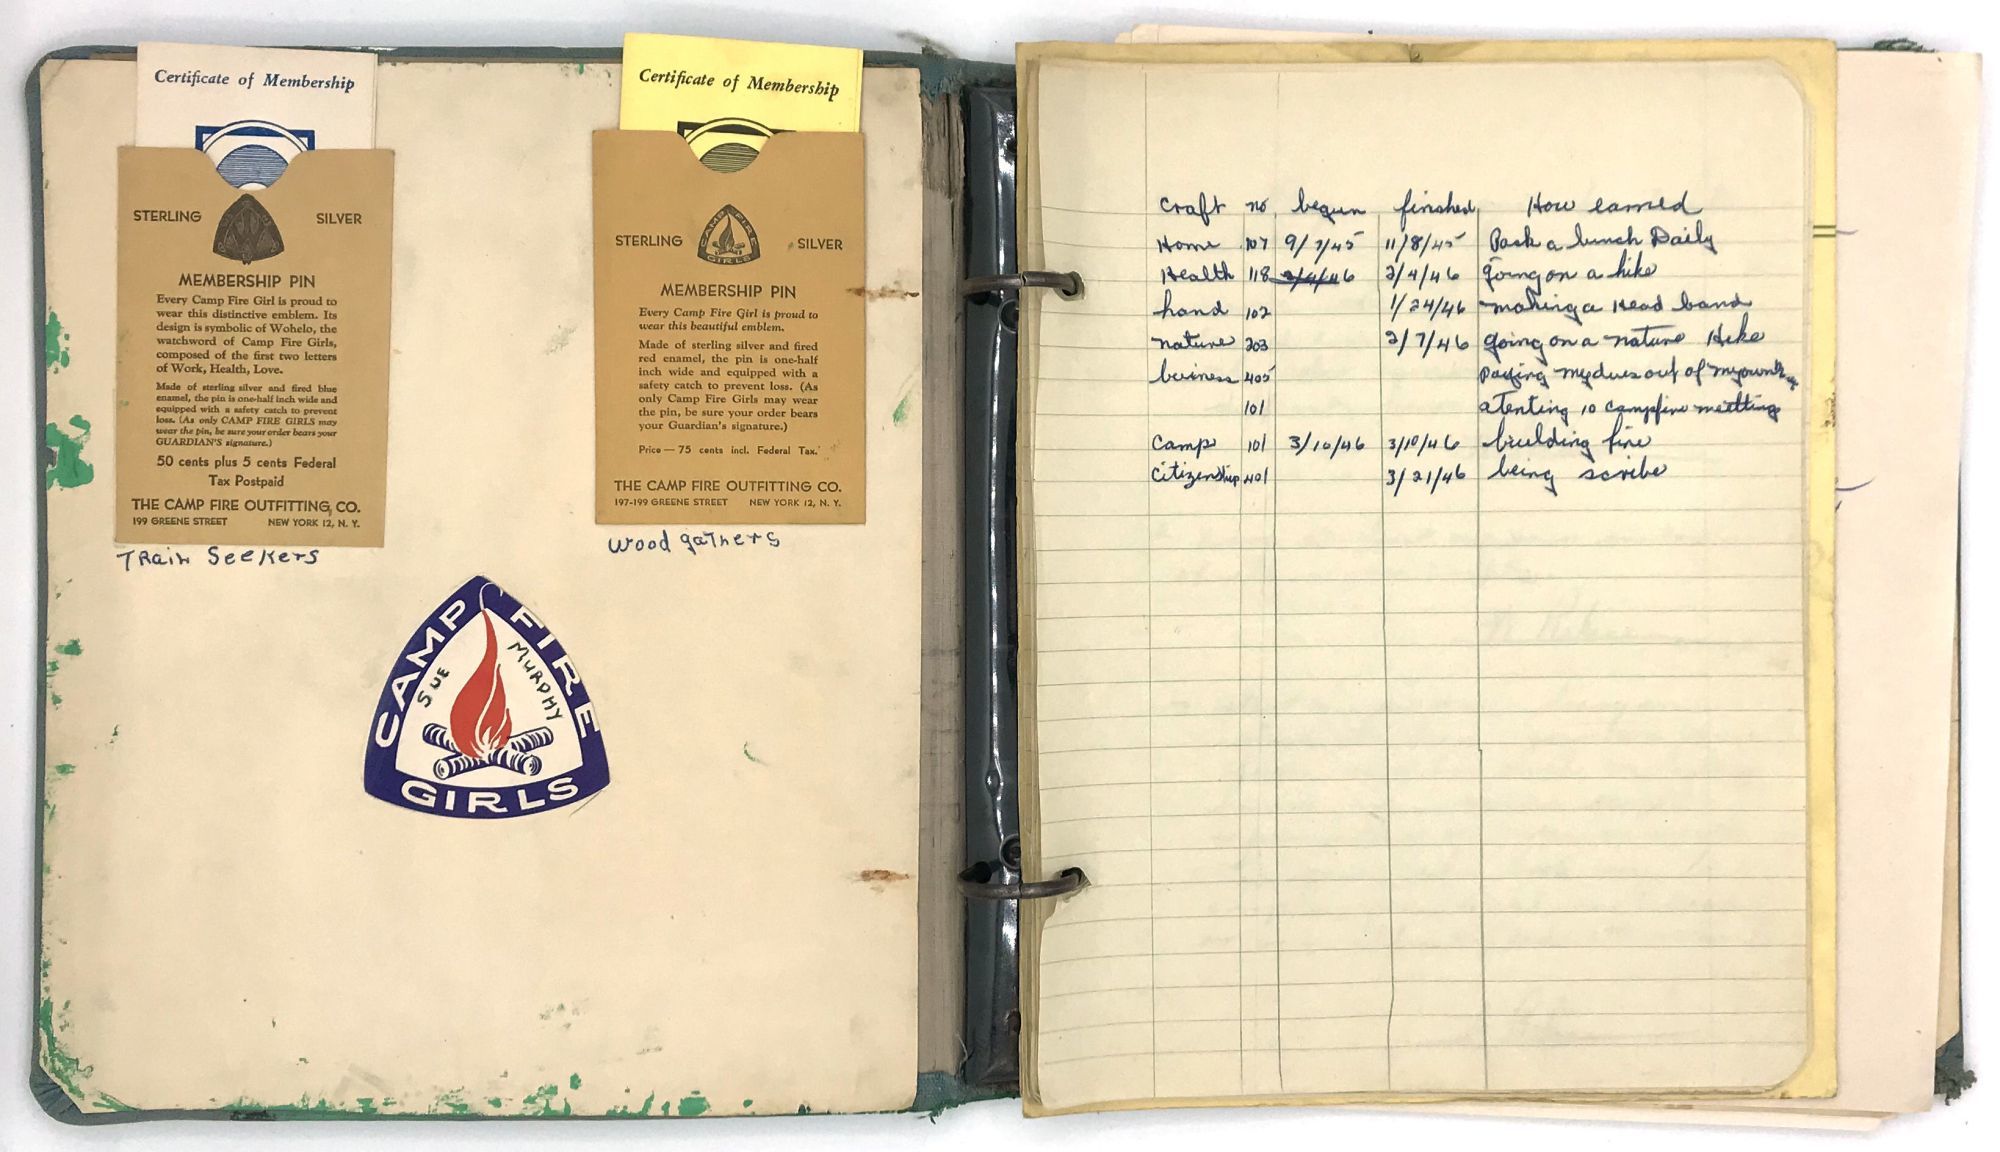 Certificate of Membership
STERLING SILVER
MEMBERSHIP PIN
Every Camp Fire Girl is proud to
wear this distinctive emblem. Its
design is symbolic of Wohelo, the
watchword of Camp Fire Girls,
composed of the first two letters
of Work, Health, Love.
Made of sterling silver and fired blue
enamel, the pin is one-half inch wide and
equipped with a safety catch to prevent
loss. (As only CAMP FIRE GIRLS may
wear the pin, be sure your order bears your
GUARDIAN'S signature.)
50 cents plus 5 cents Federal
Tax Postpaid
THE CAMP FIRE OUTFITTING CO.
199 GREENE STREET NEW YORK 12, N. Y.
Train Seekers
Certificate of Membership
STERLING SILVER
CAMP FIRE
GIRLS
MEMBERSHIP PIN
Every Camp Fire Girl is proud to
wear this beautiful emblem.
Made of sterling silver and fired
red enamel, the pin is one-half
inch wide and equipped with a
safety catch to prevent loss. (As
only Camp Fire Girls may wear
the pin, be sure your order bears
your Guardian's signature.)
Price — 75 cents incl. Federal Tax.
THE CAMP FIRE OUTFITTING CO.
197-199 GREENE STREET NEW YORK 12, N. Y.
Wood gathers
CAMP FIRE
SUE MURPHY
GIRLS
craft no begun finished How earned
Home 107 9/7/45 11/8/45 Pack a lunch Daily
Health 118 2/4/46 2/4/46 going on a hike
hand 102 1/24/46 making a Head band
nature 203 2/7/46 going on a nature Hike
buiness 405 paying my dues out of my own
101 atenting 10 campfire meetting
camp 101 3/10/46 3/10/46 building fire
Citizenship 401 3/21/46 being scribe